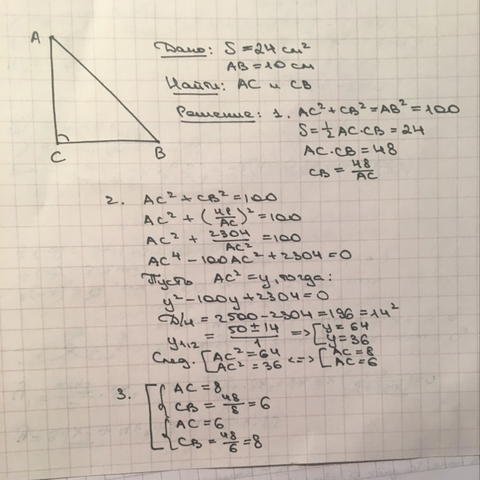 A
C
B
Дано: S = 24 см²
AB = 10 см
Найти: AC и CB
Решение: 1. AC² + CB² = AB² = 100
S = 1/2 AC · CB = 24
AC · CB = 48
CB = 48/AC
2. AC² + CB² = 100
AC² + (48/AC)² = 100
AC² + 2304/AC² = 100
AC⁴ - 100AC² + 2304 = 0
Пусть AC² = y, тогда:
y² - 100y + 2304 = 0
D/4 = 2500 - 2304 = 196 = 14²
y₁,₂ = (50 ± 14)/1 => [y = 64
y = 36
След. [AC² = 64 <=> [AC = 8
AC² = 36 AC = 6
3. [{AC = 8
CB = 48/8 = 6
{AC = 6
CB = 48/6 = 8